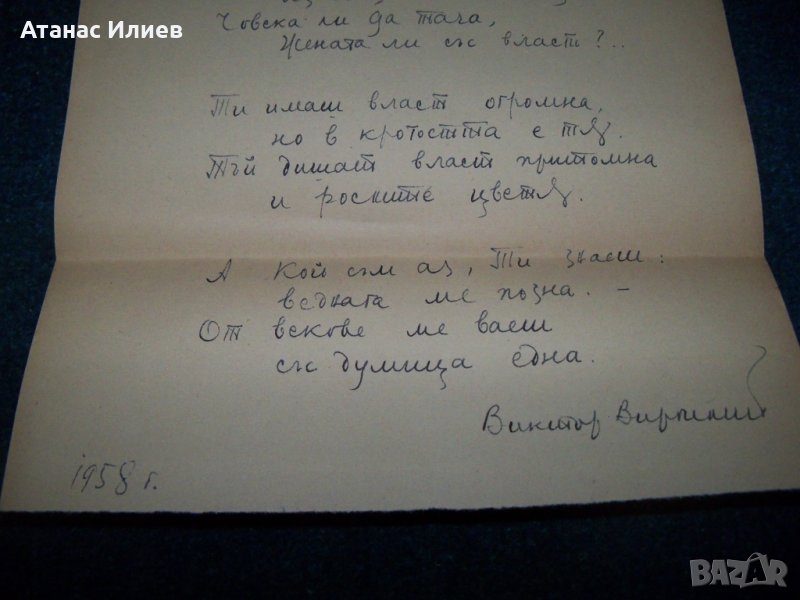 Атанас Илиев
Човека ли да тача,
Жената ли със власт?..
Ти имаш власт огромна,
но в кротостта е тя.
Тъй дишат власт притомна
и росните цветя.
А кой съм аз, Ти знаеш:
веднага ме позна. –
От векове ме ваеш
със думица една.
Виктор
1958 г.
BAZAR